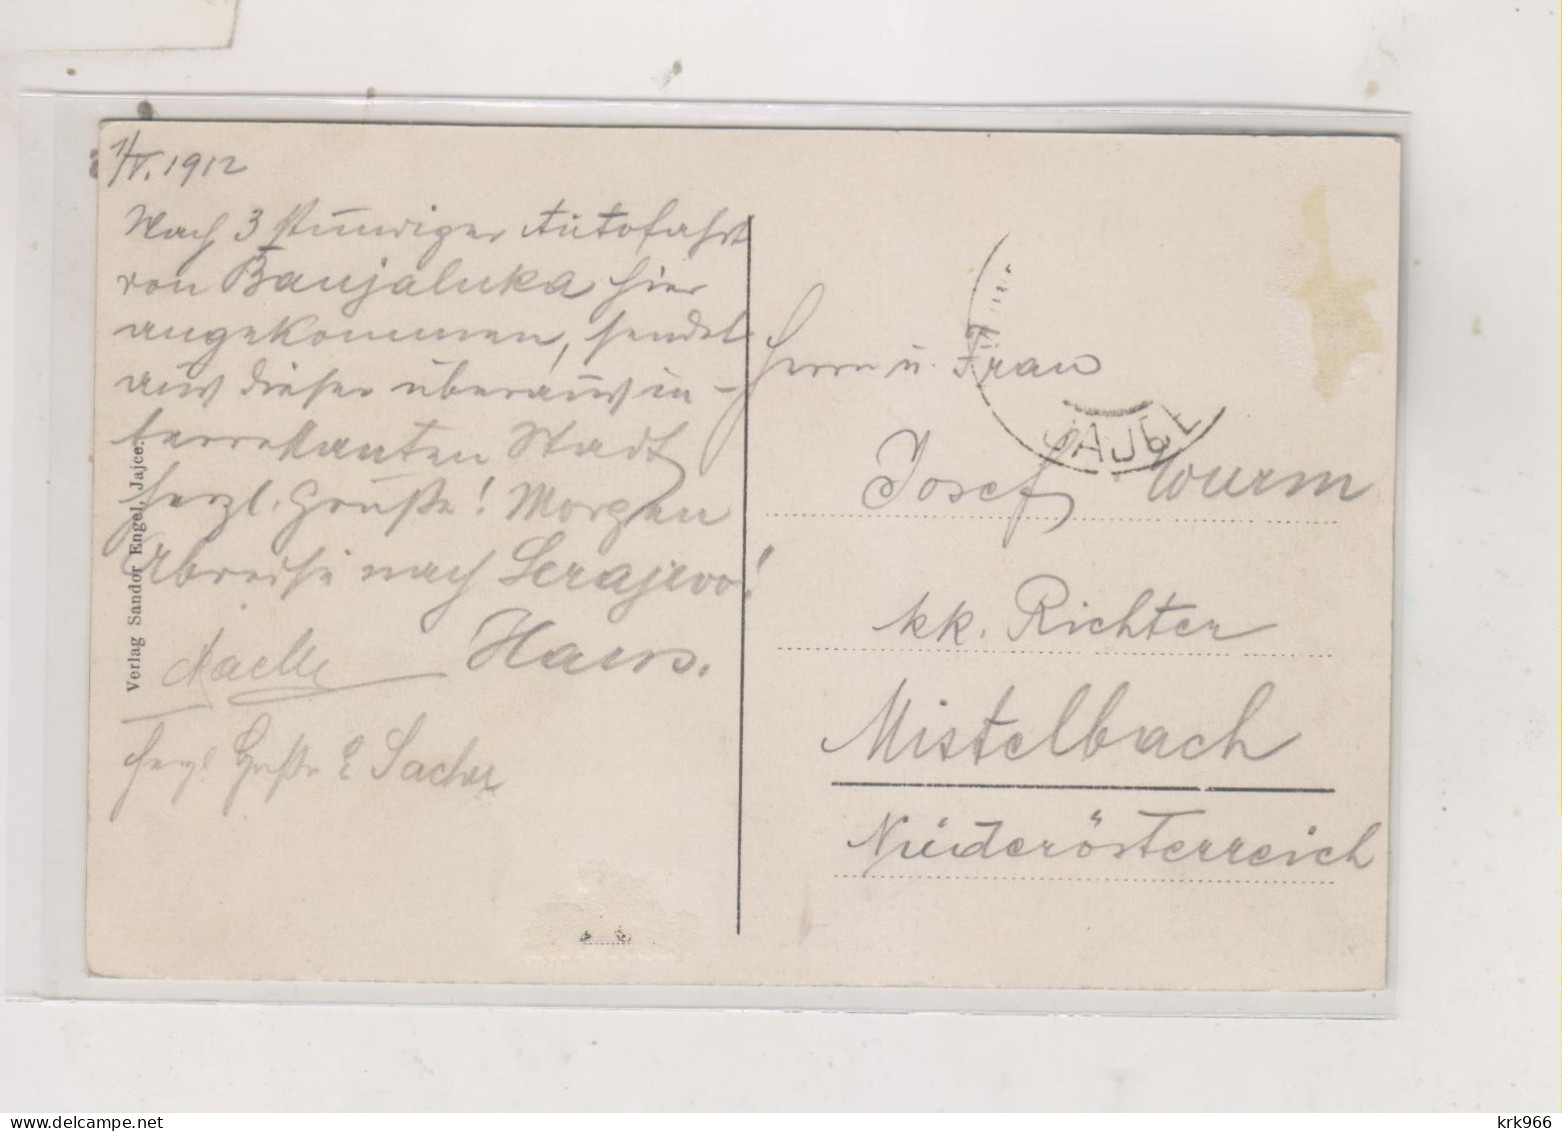 1/V. 1912
Nach 3 stündiger Autofahrt
von Banjaluka hier
angekommen, sendet
aus dieser überaus in-
teressanten Stadt
herzl. Grüße! Morgen
Abreise nach Serajevo!
Hans.
herzl Grüße Sacher
Verlag Sandor Engel, Jajce.
Herrn u. Frau
JAJCE
Josef Wurm
kk. Richter
Mistelbach
Niederösterreich
krk966